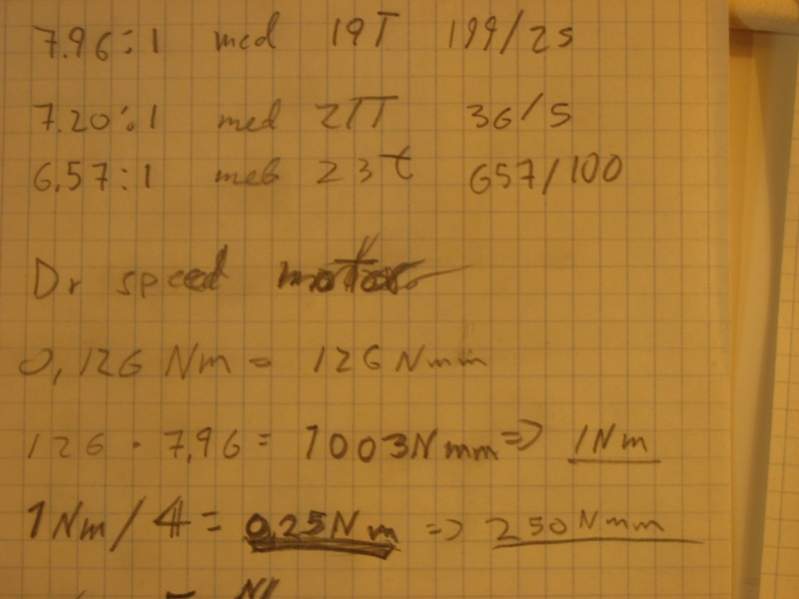 7.96:1 med 19T 199/25
7.20:1 med 21T 36/5
6.57:1 med 23t 657/100
Dr speed motor
0,126 Nm = 126 Nmm
126 · 7,96 = 1003Nmm => 1Nm
1Nm / 4 = 0,25Nm => 250Nmm